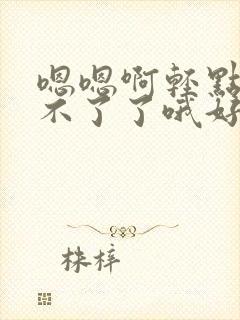 嗯嗯啊轻點
不了了哦好
株梓